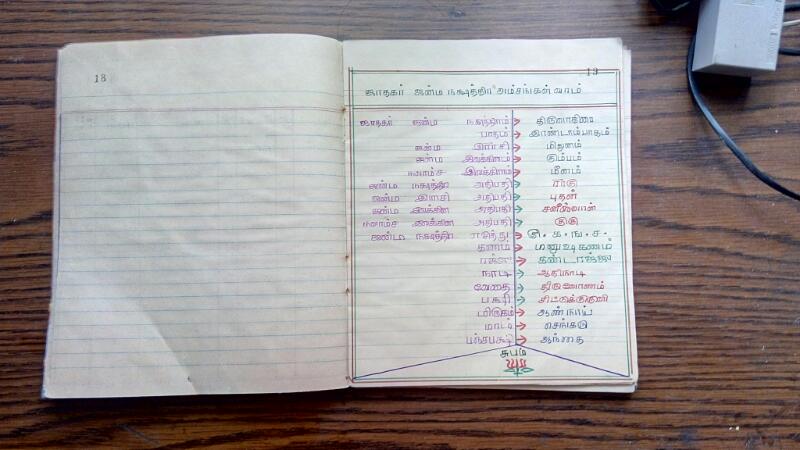 18
19
ஜாதகர் ஜன்ம நக்ஷத்திர அம்சங்கள் வாம்
ஜாதகர் ஜன்ம நக்ஷத்திரம் → திருவாதிரை
பாதம் → இரண்டாம்பாதம்
ஜன்ம இராசி → மிதுனம்
ஜன்ம இலக்கினம் → கும்பம்
நவாம்ச இலக்கினம் → மீனம்
ஜன்ம நக்ஷத்திர அதிபதி → ராகு
ஜன்ம இராசி அதிபதி → புதன்
ஜன்ம இலக்கின அதிபதி → சனீஸ்வரன்
நவாம்ச இலக்கின அதிபதி → குரு
ஜன்ம நக்ஷத்திர எழுத்து → கு. க. ங. ச.
கணம் → மனுஷகணம்
ரஜ்ஜு → கண்டரஜ்ஜு
நாடி → ஆதிநாடி
வேதை → திருவோணம்
பக்ஷி → சிட்டுக்குருவி
மிருகம் → ஆண்நாய்
மரம் → செங்கரு
பஞ்சபக்ஷி → ஆந்தை
சுபம்